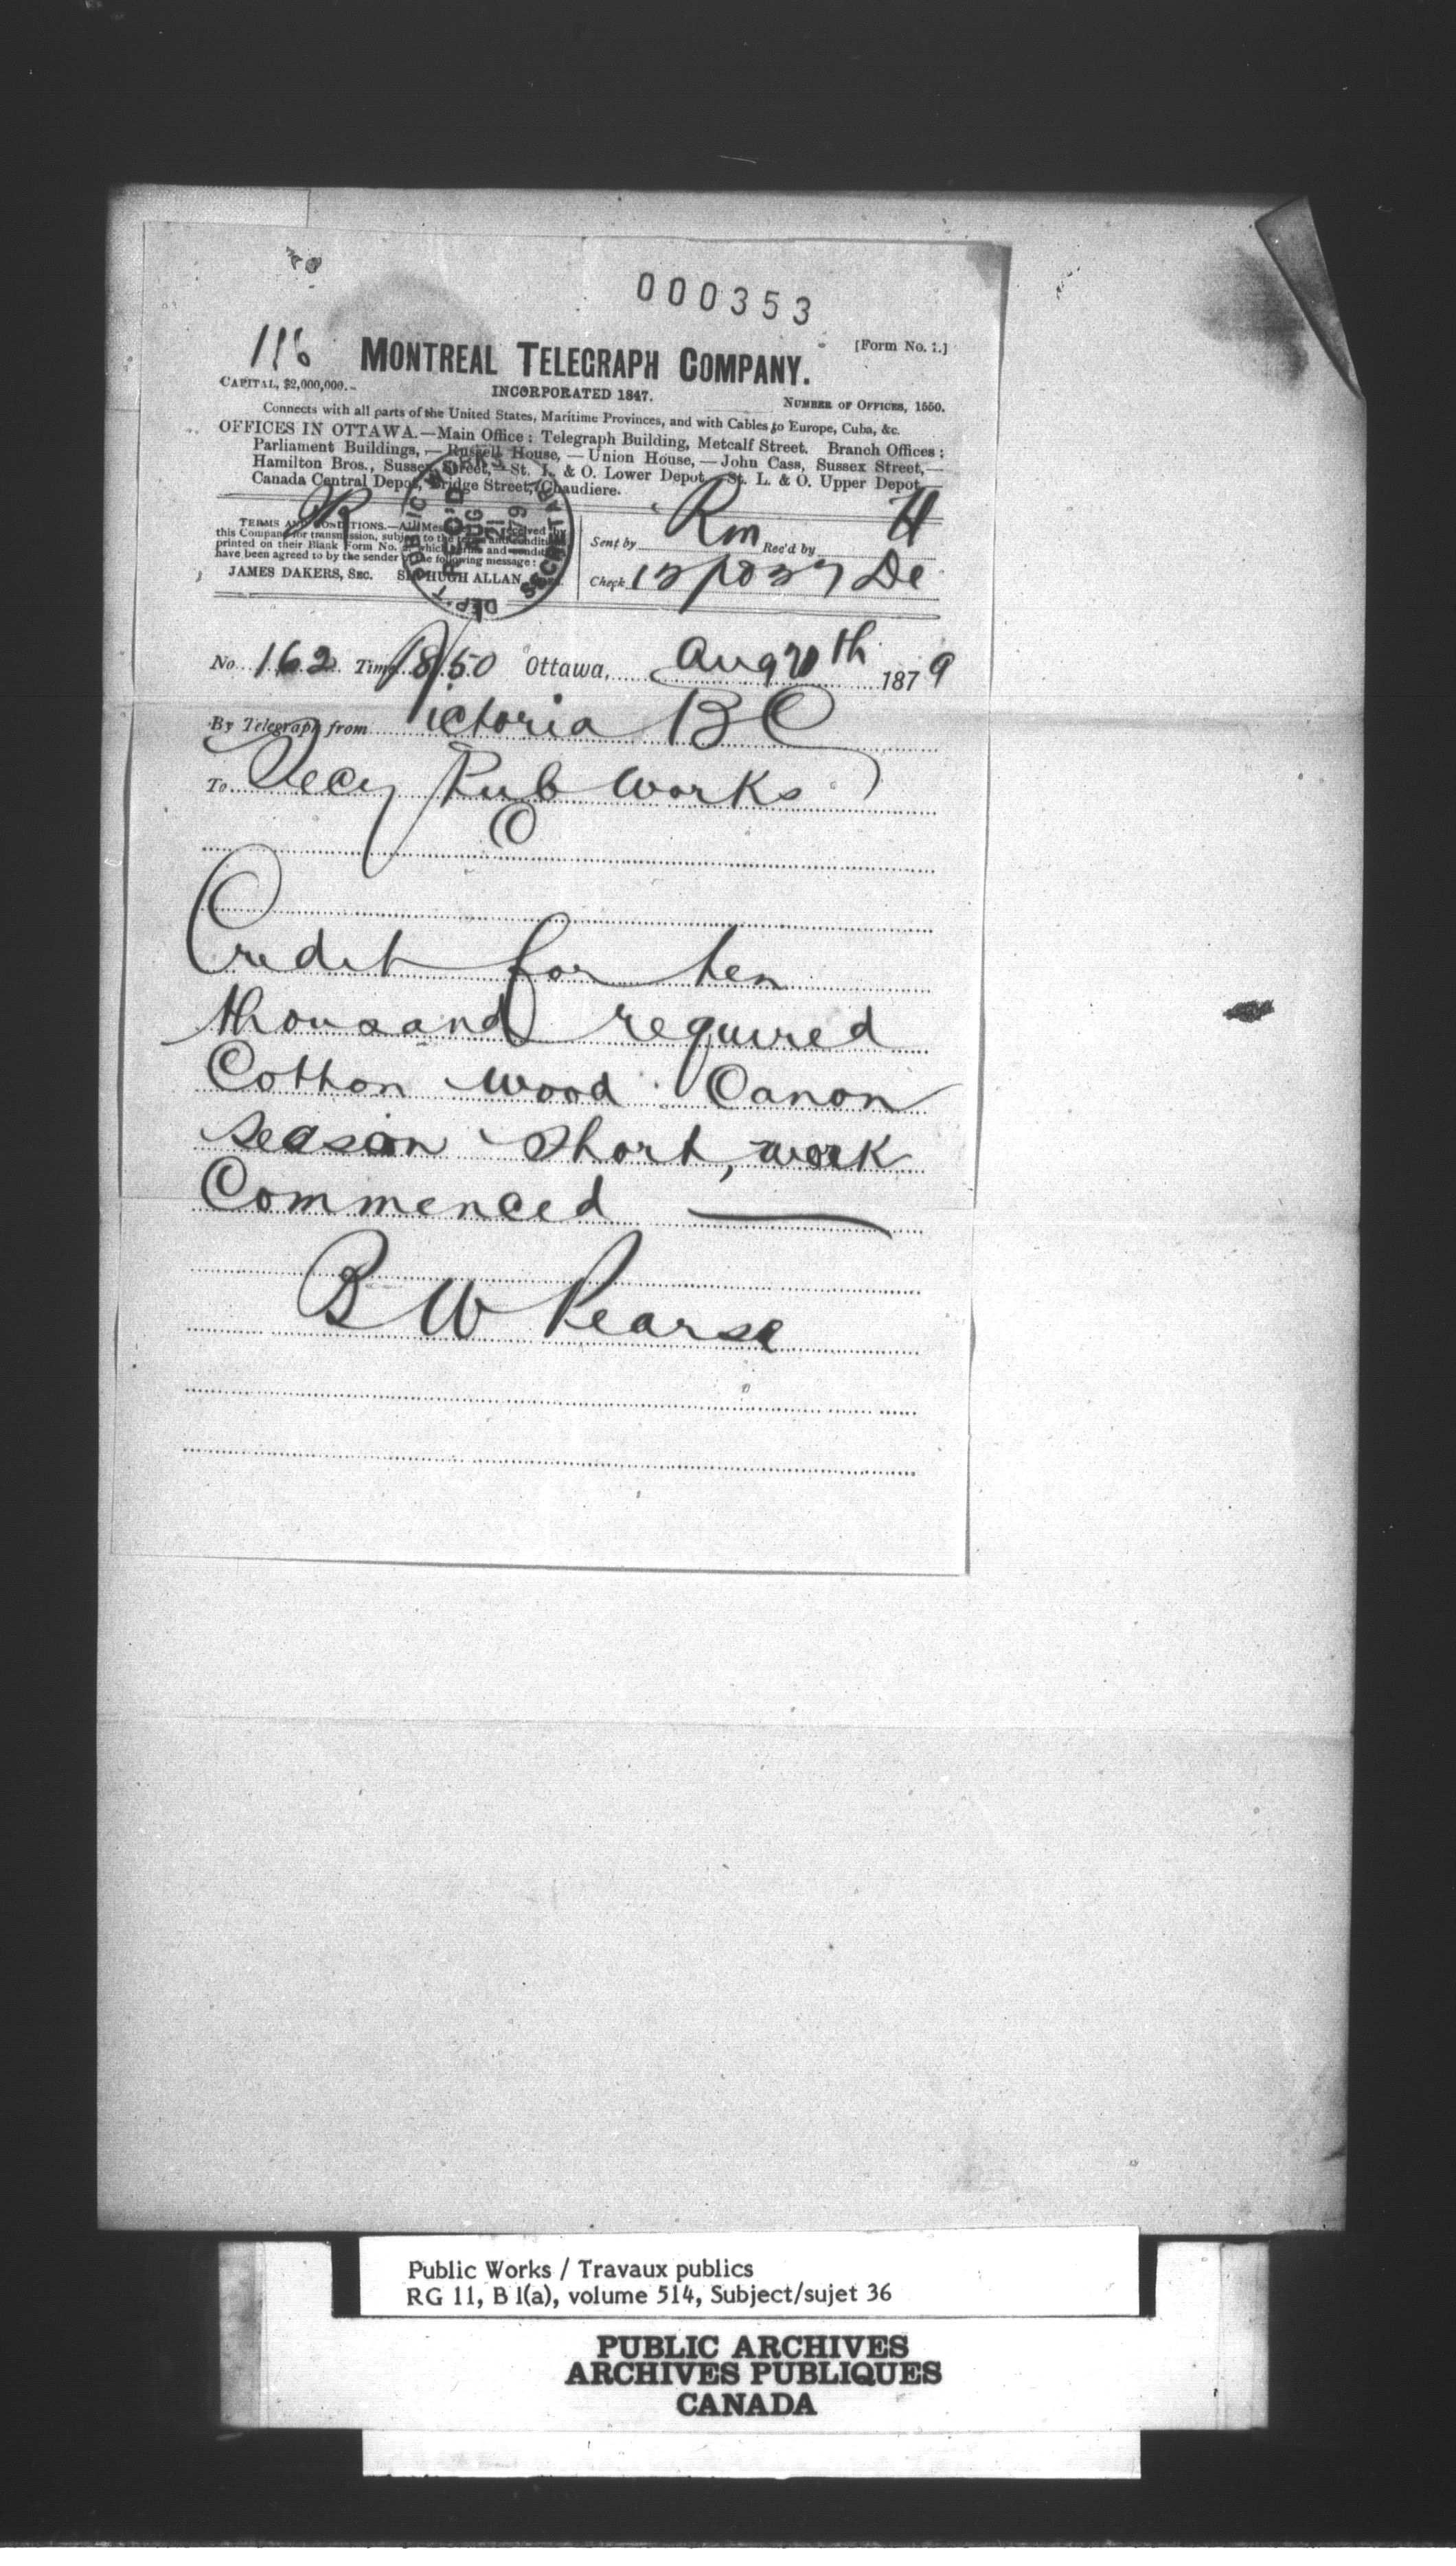 000353
116
[Form No. 1.]
MONTREAL TELEGRAPH COMPANY.
CAPITAL, $2,000,000.
INCORPORATED 1847.
NUMBER OF OFFICES, 1550.
Connects with all parts of the United States, Maritime Provinces, and with Cables to Europe, Cuba, &c.
OFFICES IN OTTAWA.—Main Office: Telegraph Building, Metcalf Street. Branch Offices:
Parliament Buildings, — Russell House, — Union House, — John Cass, Sussex Street,—
Hamilton Bros., Sussex Street,—St. L. & O. Lower Depot,—St. L. & O. Upper Depot,—
Canada Central Depot, Bridge Street, Chaudiere.
TERMS AND CONDITIONS.—All Messages received by
this Company for transmission, subject to the terms and conditions
printed on their Blank Form No. which terms and conditions
have been agreed to by the sender of the following message:
JAMES DAKERS, SEC. SIR HUGH ALLAN,
DEP'T PUBLIC WORKS
REC'D
AUG
21
1879
SECRETARY
Sent by Rm Rec'd by H
Check
No. 162 Time 18/50 Ottawa, Aug 20th 1879
By Telegraph from Victoria BC
To Secy Pub Works
O
Credit for ten
thousand required
Cotton wood Canon
season short, work
Commenced —
B W Pearse
Public Works / Travaux publics
RG 11, B 1(a), volume 514, Subject/sujet 36
PUBLIC ARCHIVES
ARCHIVES PUBLIQUES
CANADA